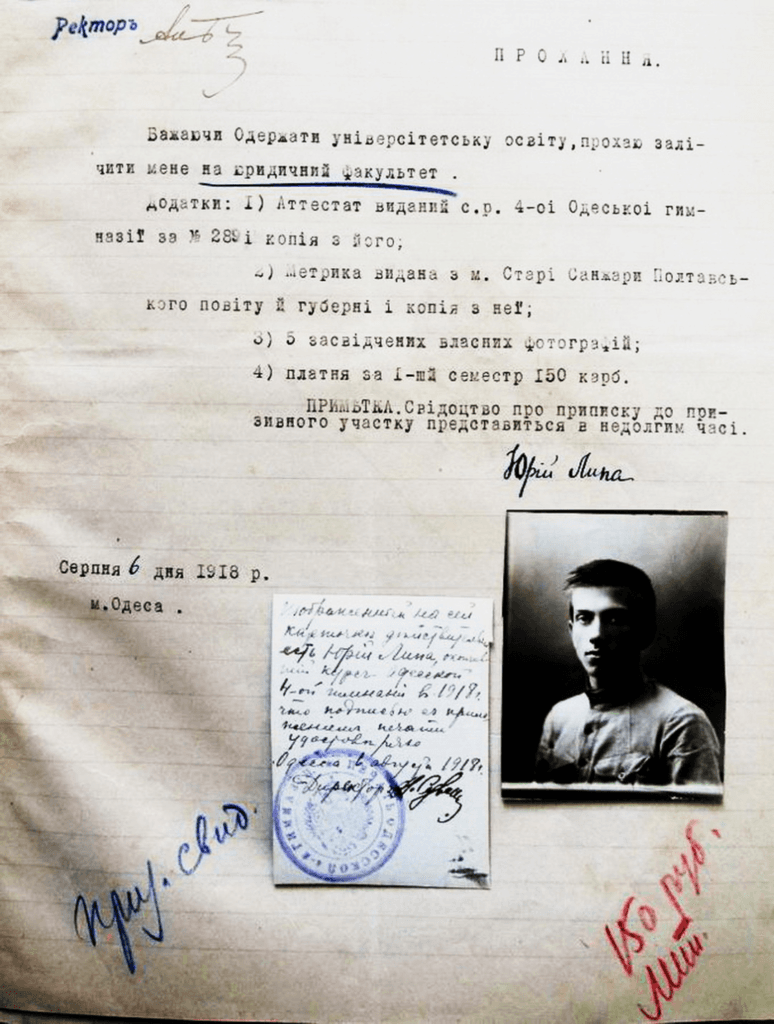 Ректоръ
П Р О Х А Н Н Я.
Бажаючи Одержати університетську освіту, прохаю залі-
чити мене на юридичний факультет .
Додатки: I) Аттестат виданий с.р. 4-оі Одеськоі гим-
назії за № 289і копія з його;
2) Метрика видана з м. Старі Санжари Полтавсь-
кого повіту й губерні і копія з неї;
3) 5 засвідчених власних фотографій;
4) платня за I-ший семестр I50 карб.
ПРИМѢТКА.Свідоцтво про приписку до при-
зивного участку представиться в недолгим часі.
Юрій Липа
Серпня 6 дня 1918 р.
м.Одеса .
Изображенный на сей
карточкѣ действительно
есть Юрій Липа, окончив
шій курсъ одесской
4-ой гимназіи в 1918 г.
что подписью съ прило
женіемъ печати
удостовѣряю
Одесса 6 августа 1918 г.
Директоръ
приз. свид.
150 руб.